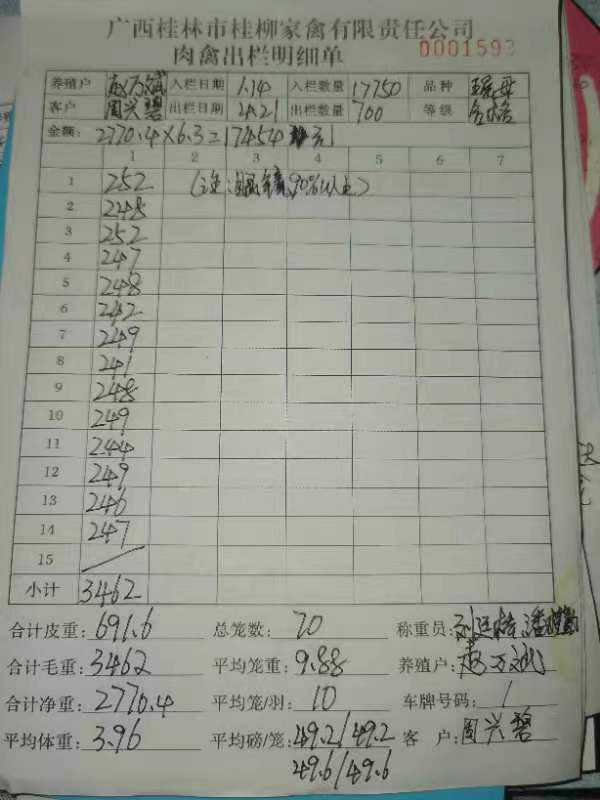 广西桂林市桂柳家禽有限责任公司
肉禽出栏明细单
0001593
养殖户 赵万斌 入栏日期 1.14 入栏数量 17750 品种
客户 周兴碧 出栏日期 24.21 出栏数量 700 等级 合格
金额: 2770.4×6.3=17454
1 2 3 4 5 6 7
1 252
2 248
3 252
4 247
5 248
6 242
7 249
8 241
9 248
10 249
11 244
12 249
13 246
14 247
15
小计 3462
合计皮重: 691.6 总笼数: 70 称重员:
合计毛重: 3462 平均笼重: 9.88 养殖户: 赵万斌
合计净重: 2770.4 平均笼/羽: 10 车牌号码: /
平均体重: 3.96 平均磅/笼: 49.2/49.2 客户: 周兴碧
49.6/49.6